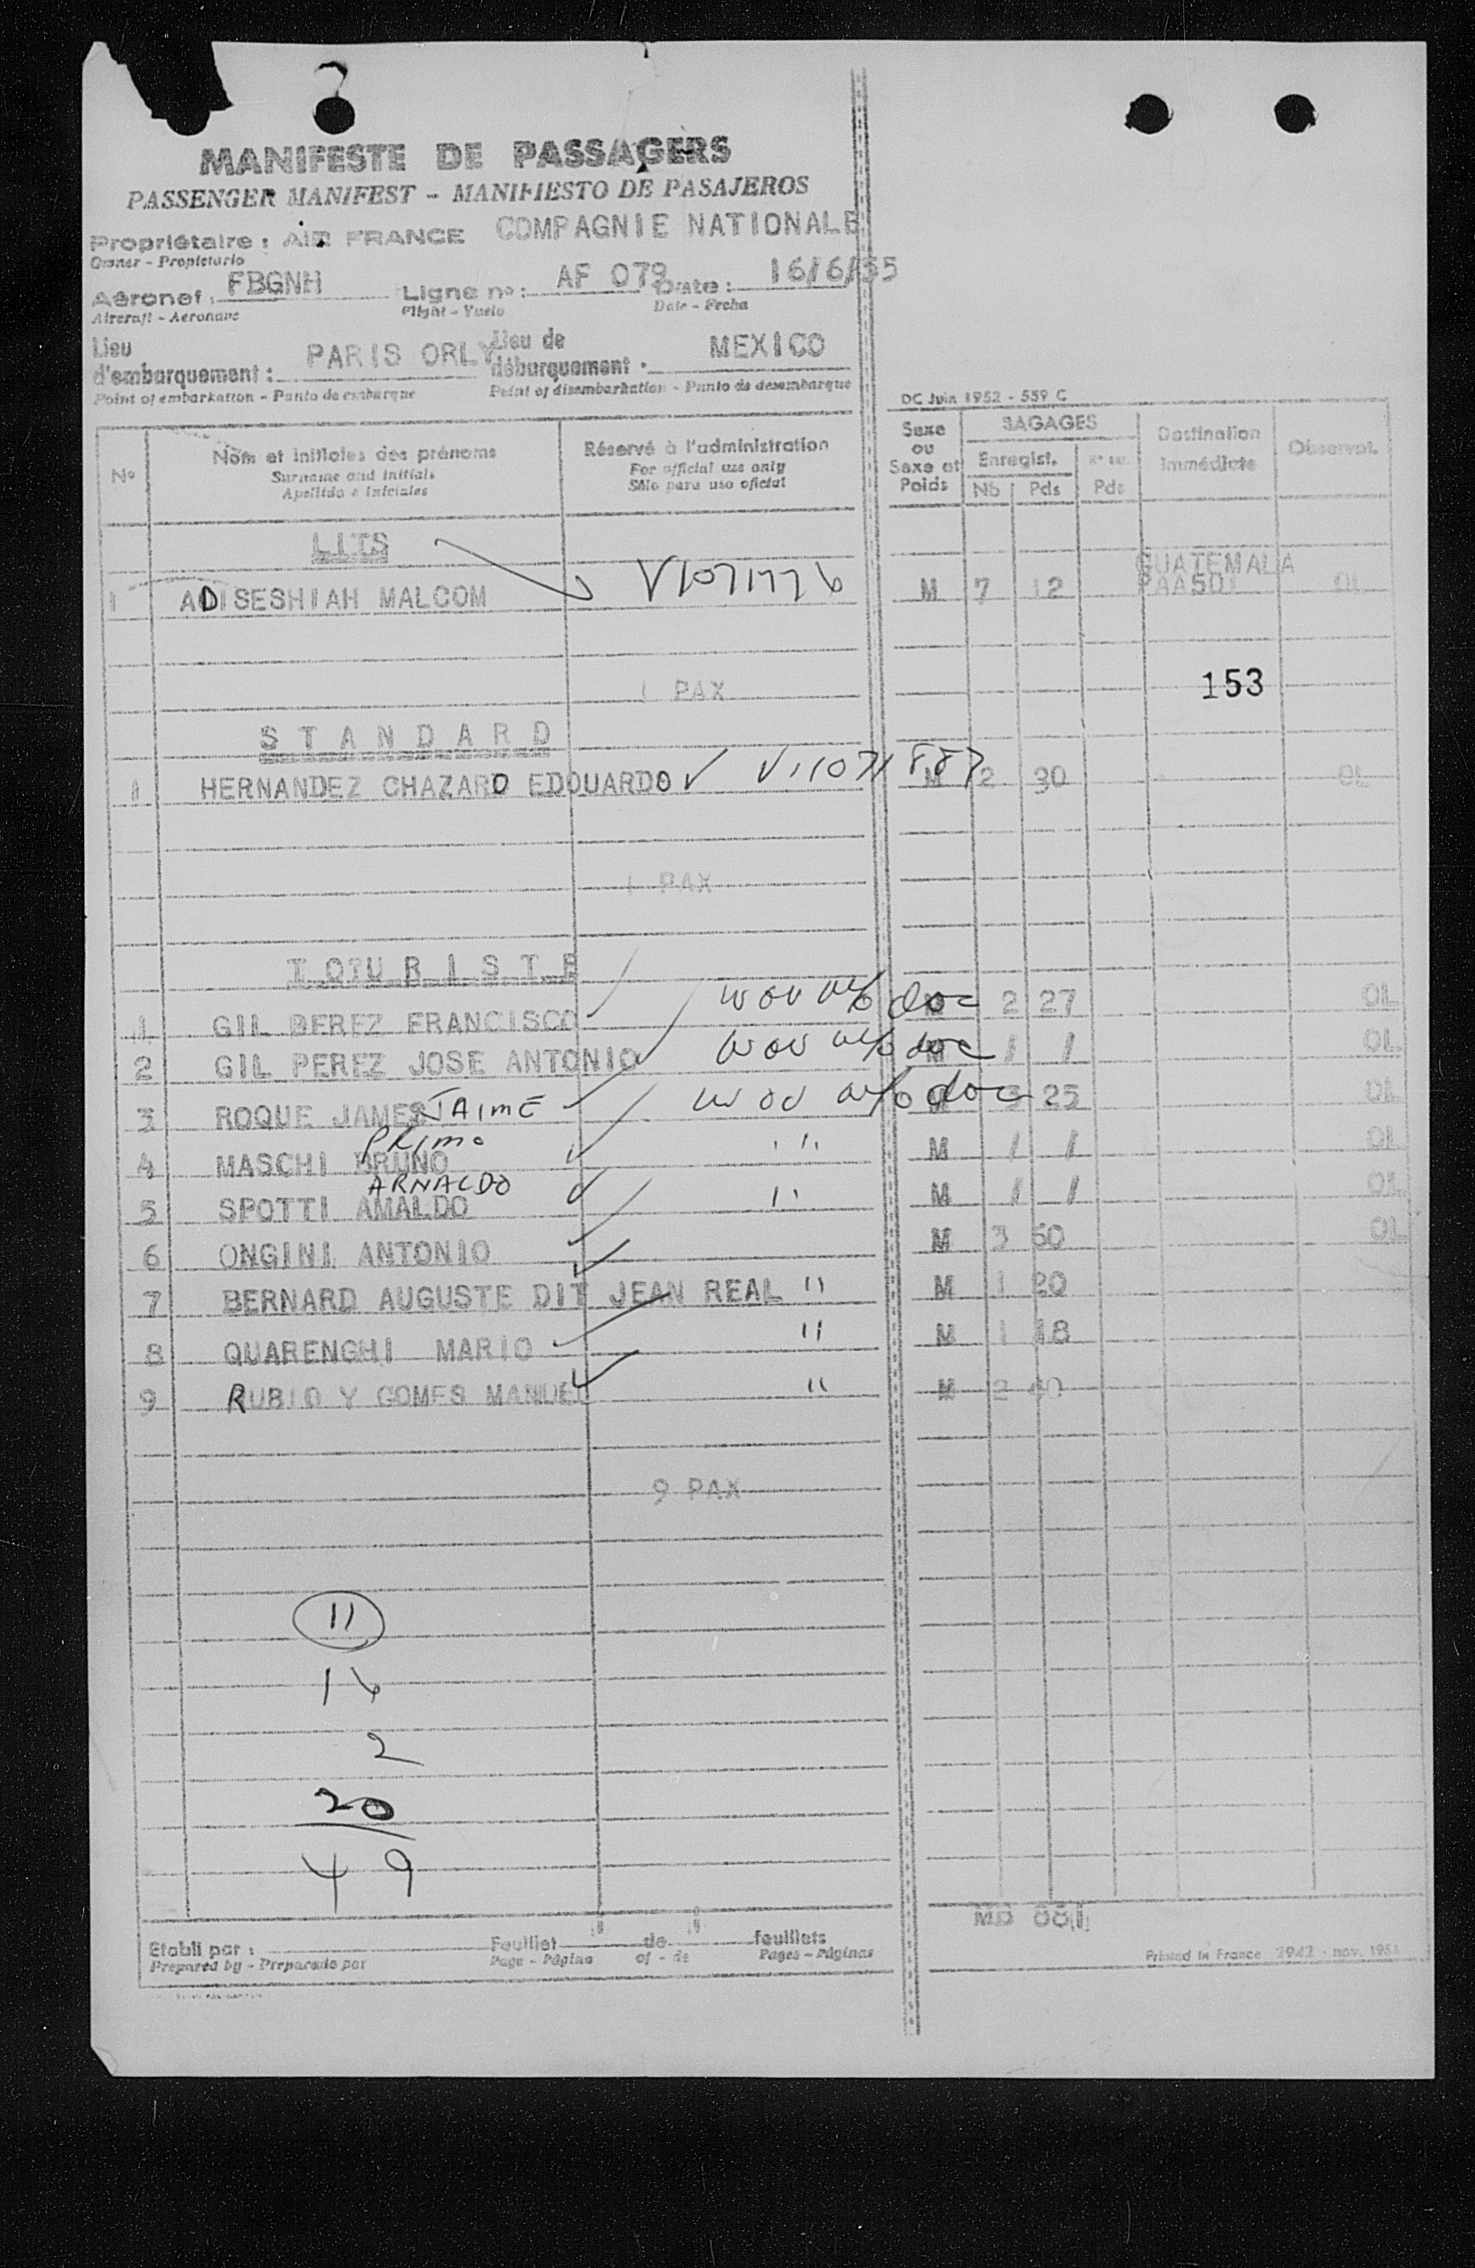 MANIFESTE DE PASSAGERS
PASSENGER MANIFEST - MANIFIESTO DE PASAJEROS
Propriétaire : AIR FRANCE COMPAGNIE NATIONALE
Owner - Propietario
Aéronef : FBGNH Ligne no : AF 079 Date : 16/6/55
Aircraft - Aeronave Flight - Vuelo Date - Fecha
Lieu d'embarquement : PARIS ORLY Lieu de débarquement : MEXICO
Point of embarkation - Punto de embarque Point of disembarkation - Punto de desembarque
DC Juin 1952 - 559 C
No Nom et initiales des prénoms Réservé à l'administration Sexe ou Sexe et Poids BAGAGES Destination immédiate Observat.
Surname and initials For official use only Enregist.
Apellido e iniciales Sólo para uso oficial Nb Pds Pds
LITS
GUATEMALA
1 ADISESHIAH MALCOM V1071776 M 7 12 PAA501 OL
1 PAX 153
STANDARD
1 HERNANDEZ CHAZARO EDOUARDO V11071887 M 2 30 OL
1 PAX
TOURISTE
1 GIL PEREZ FRANCISCO WOV w/o doc 2 27 OL
2 GIL PEREZ JOSE ANTONIO WOV w/o doc M / / OL
3 ROQUE JAMES JAIME WOV w/o doc M 3 25 OL
PRIMO
4 MASCHI BRUNO " M / / OL
ARNALDO
5 SPOTTI AMALDO " M / / OL
6 ONGINI ANTONIO M 3 60 OL
7 BERNARD AUGUSTE DIT JEAN REAL " M 1 20
8 QUARENGHI MARIO " M 1 18
9 RUBIO Y GOMES MANUEL " M 2 40
9 PAX
11
16
2
20
49
Etabli par : Feuillet de feuillets
Prepared by - Preparado por Page - Página of - de Pages - Páginas
Printed in France